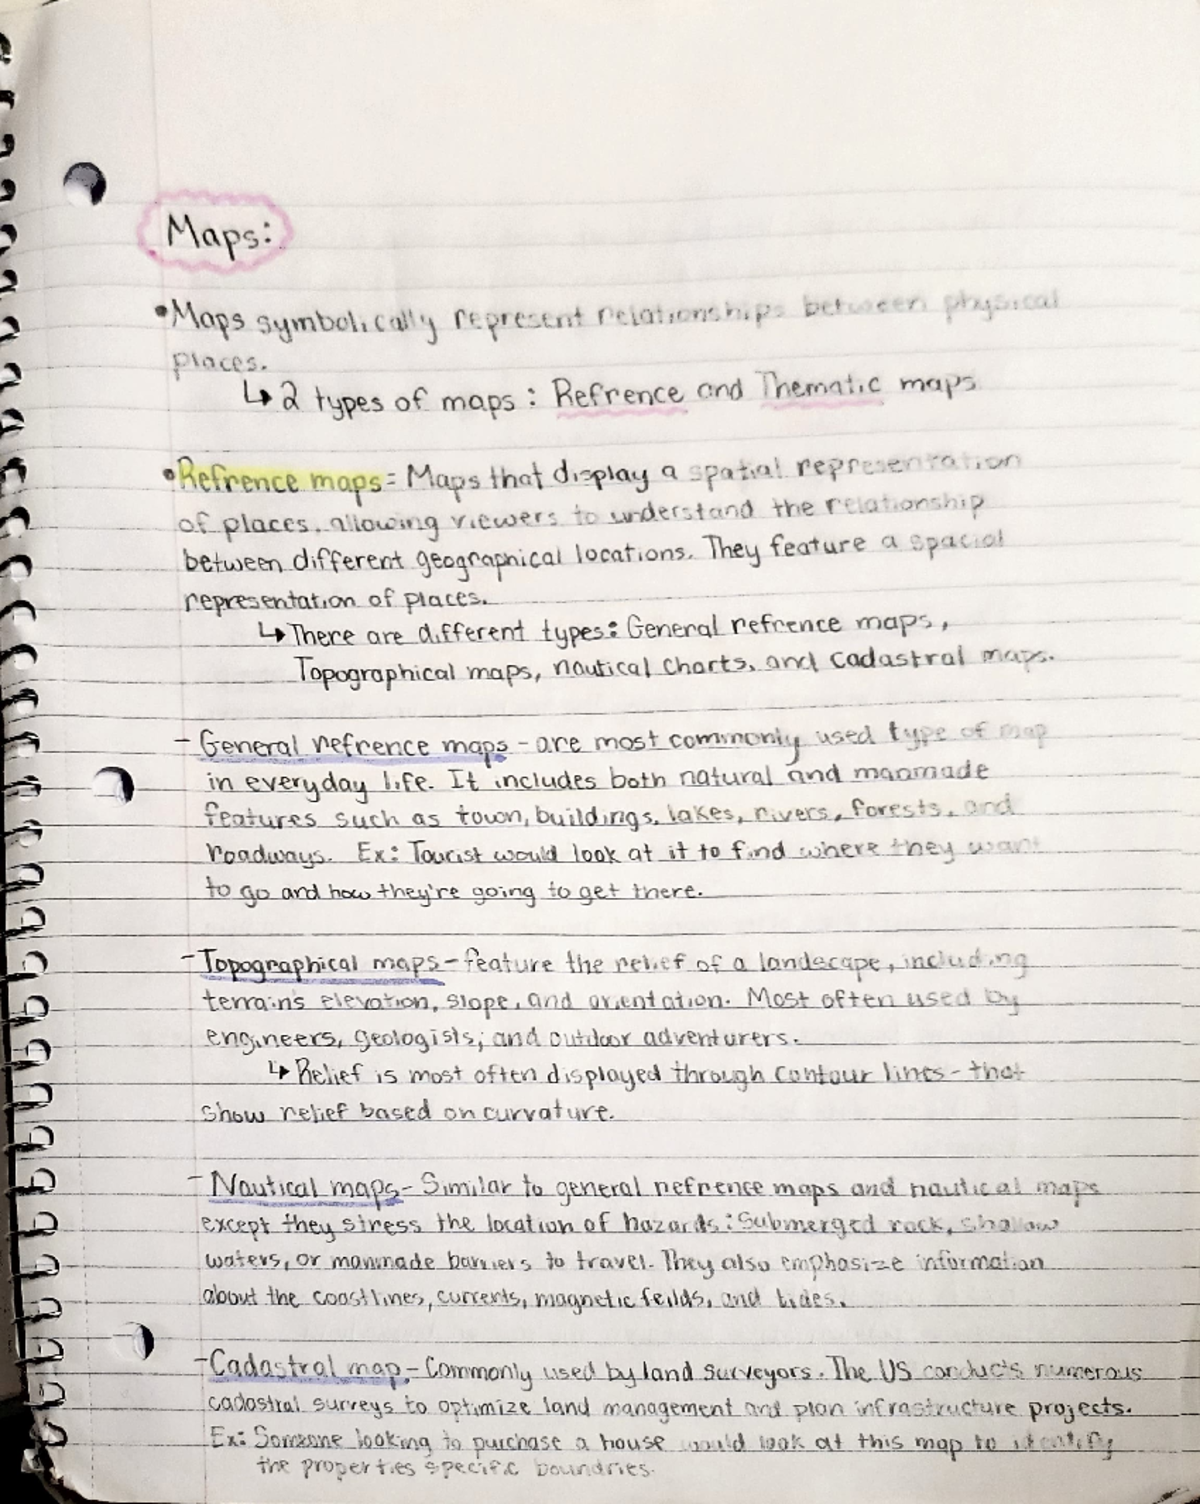 Maps:
•Maps symbolically represent relationships between physical
places.
↳ 2 types of maps : Refrence and Thematic maps
•Refrence maps= Maps that display a spatial representation
of places, allowing viewers to understand the relationship
between different geographical locations. They feature a spacial
representation of places.
↳ There are different types: General refrence maps,
Topographical maps, nautical charts, and cadastral maps.
- General refrence maps - are most commonly used type of map
in everyday life. It includes both natural and manmade
features such as town, buildings, lakes, rivers, forests, and
roadways. Ex: Tourist would look at it to find where they want
to go and how they're going to get there.
- Topographical maps - feature the relief of a landscape, including
terrains elevation, slope, and orientation. Most often used by
engineers, geologists, and outdoor adventurers.
↳ Relief is most often displayed through contour lines - that
show relief based on curvature.
- Nautical maps - Similar to general refrence maps and nautical maps
except they stress the location of hazards: Submerged rock, shallow
waters, or manmade barriers to travel. They also emphasize information
about the coastlines, currents, magnetic feilds, and tides.
- Cadastral map - Commonly used by land surveyors. The US conducts numerous
cadastral surveys to optimize land management and plan infrastructure projects.
Ex: Someone looking to purchase a house would look at this map to identify
the properties specific boundries.